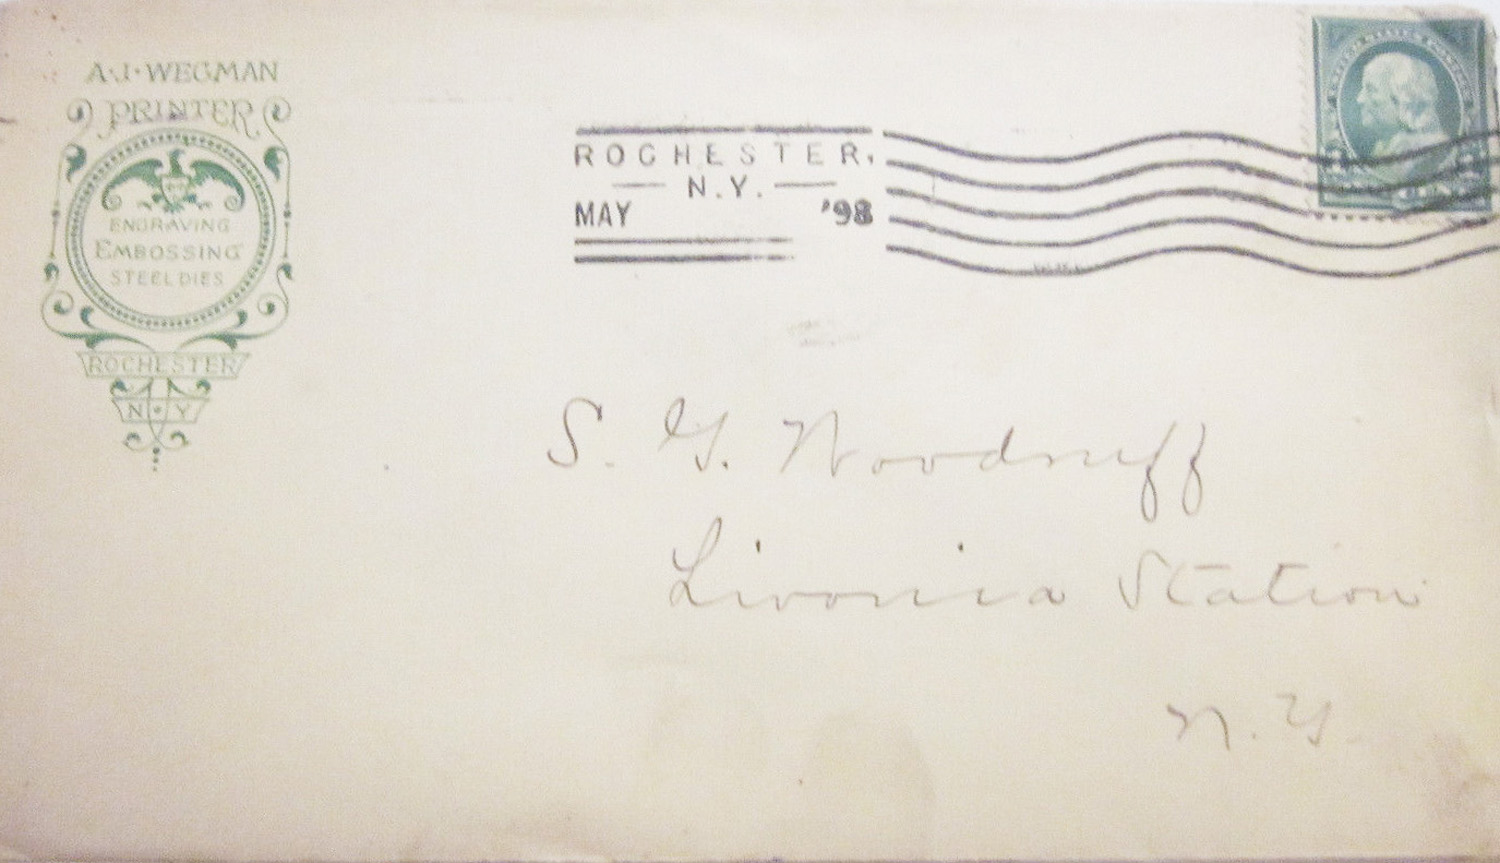 A·J·WEGMAN
PRINTER
ENGRAVING
EMBOSSING
STEEL DIES
ROCHESTER
N·Y
ROCHESTER,
N.Y.
MAY '98
S. G. Woodruff
Livonia Station
N.Y.